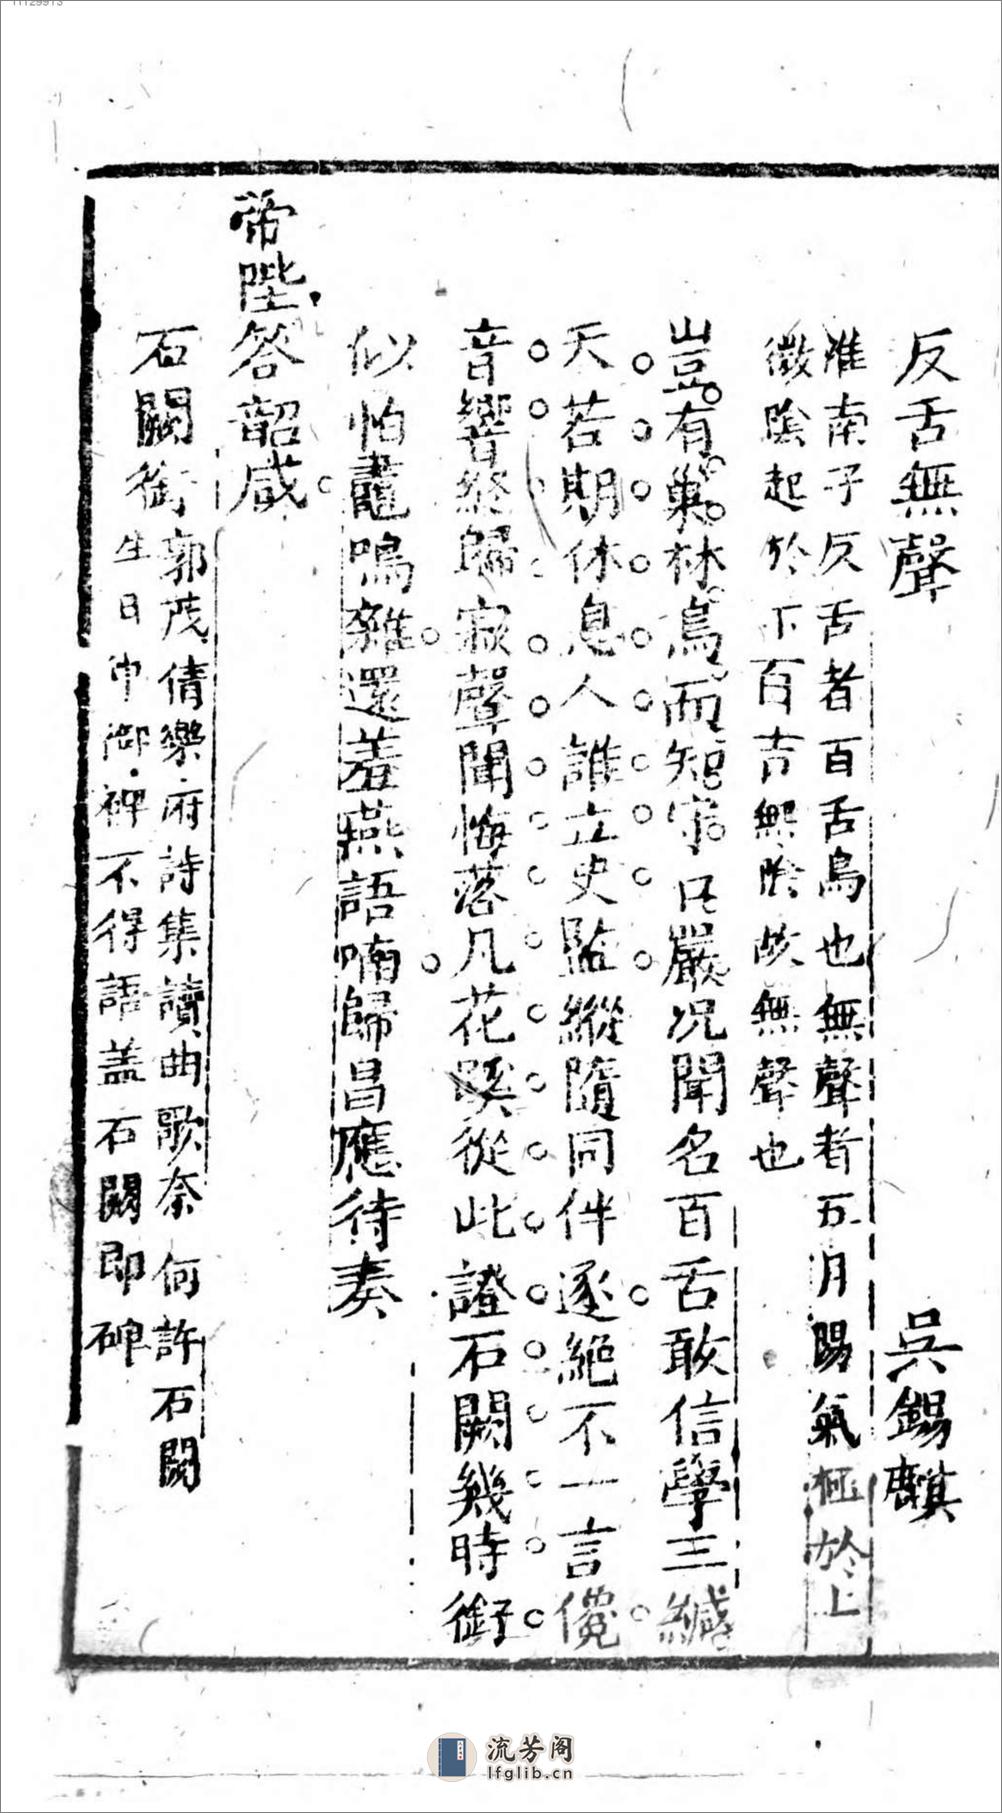 11129913
反舌無聲 吳錫麒
淮南子反舌者百舌鳥也無聲者五月陽氣極於上
微陰起於下百舌無陰故無聲也
豈有巢林鳥而知守口嚴况聞名百舌敢信學三緘
天若期休息人誰立史監縱隨同伴逐絕不一言儳
音響終歸寂聲聞悔落凡花睽從此證石闕幾時銜
似怕鼃鳴雜還羞燕語喃歸昌應待奏
帝陛答韶咸
石闕銜
郭茂倩樂府詩集讀曲歌奈何許石闕
生口中銜碑不得語蓋石闕即碑
流芳阁
lfglib.cn